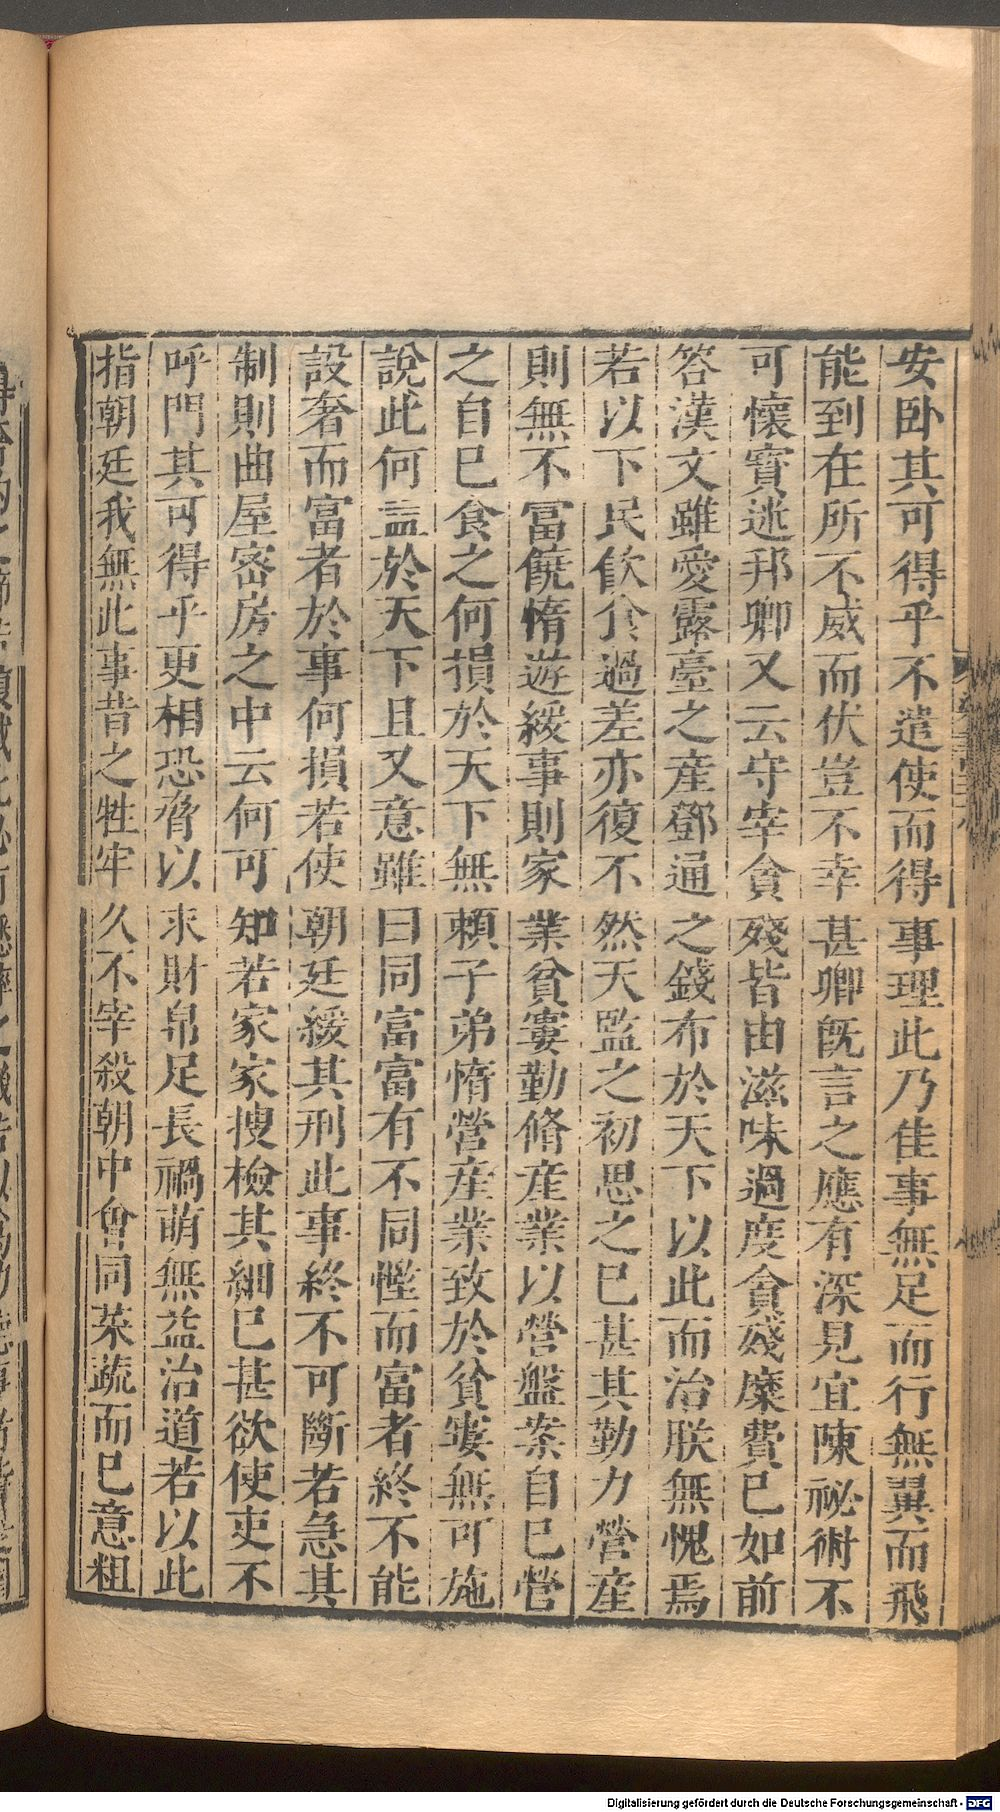 安卧其可得乎不遣使而得事理此乃佳事無足而行無翼而飛
能到在所不威而伏豈不幸甚卿旣言之應有深見宜陳祕術不
可懷寶迷邦卿又云守宰貪殘皆由滋味過度貪殘糜費已如前
答漢文雖愛露臺之産鄧通之錢布於天下以此而治朕無愧焉
若以下民飮食過差亦復不然天監之初思之已甚其勤力營産
則無不冨饒惰遊緩事則家業貧窶勤脩産業以營盤案自已營
之自已食之何損於天下無頼子弟惰營産業致於貧窶無可施
說此何益於天下且又意雖曰同富富有不同慳而富者終不能
設奢而富者於事何損若使朝廷緩其刑此事終不可斷若急其
制則曲屋密房之中云何可知若家家搜檢其細已甚欲使吏不
呼門其可得乎更相恐脅以求財帛足長禍萌無益治道若以此
指朝廷我無此事昔之牲牢久不宰殺朝中會同菜蔬而已意粗
Digitalisierung gefördert durch die Deutsche Forschungsgemeinschaft - DFG